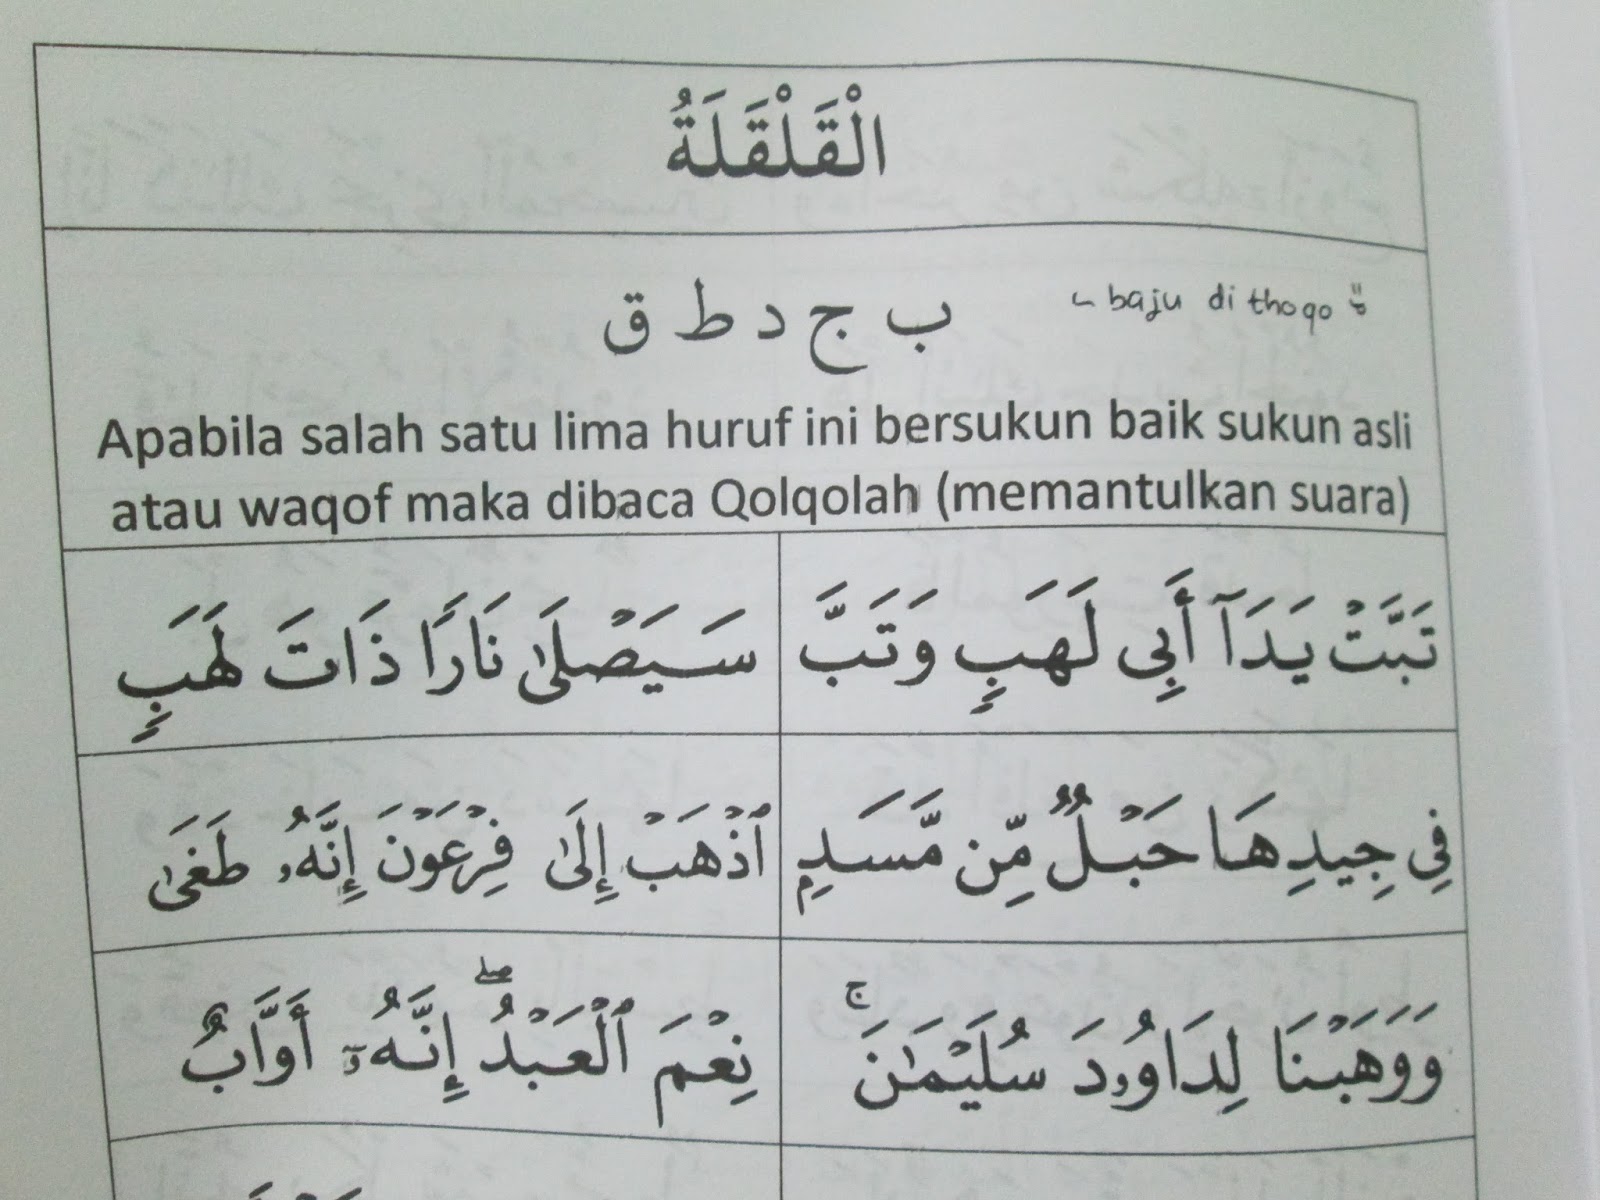 الْقَلْقَلَةُ
ب ج د ط ق
baju di thoqo
Apabila salah satu lima huruf ini bersukun baik sukun asli
atau waqof maka dibaca Qolqolah (memantulkan suara)
تَبَّتْ يَدَآ أَبِى لَهَبٍ وَتَبَّ
سَيَصْلَىٰ نَارًا ذَاتَ لَهَبٍ
فِى جِيدِهَا حَبْلٌ مِّن مَّسَدٍ
ٱذْهَبْ إِلَىٰ فِرْعَوْنَ إِنَّهُۥ طَغَىٰ
وَوَهَبْنَا لِدَاوُۥدَ سُلَيْمَـٰنَ ۚ
نِعْمَ ٱلْعَبْدُ ۖ إِنَّهُۥٓ أَوَّابٌ